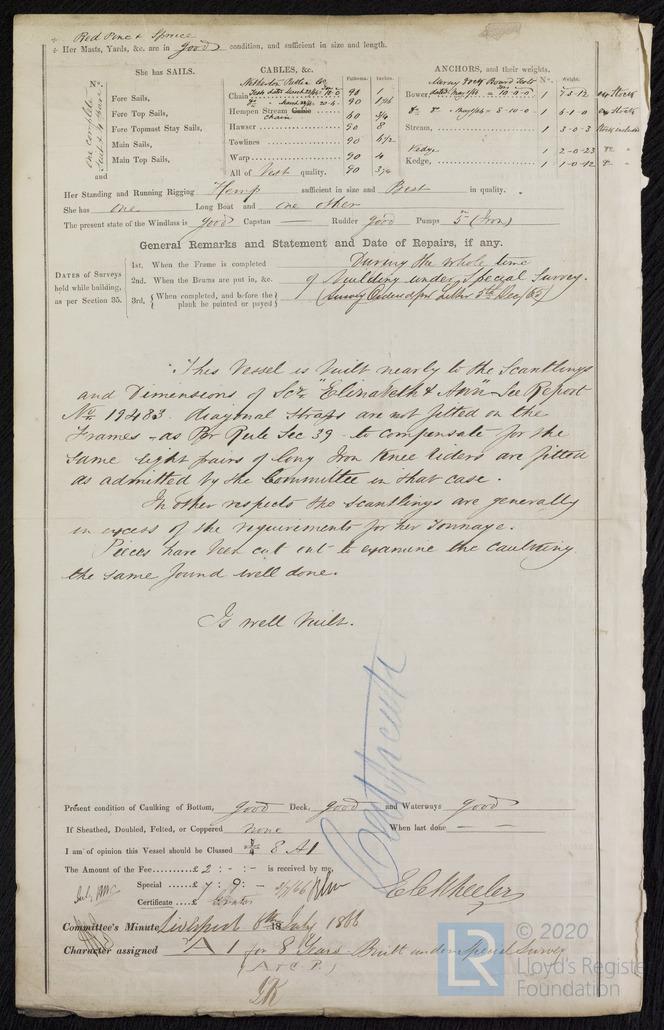 Red Pine & Spruce
Her Masts, Yards, &c. are in good condition, and sufficient in size and length.
She has SAILS.
Fore Sails,
Fore Top Sails,
Fore Topmast Stay Sails,
Main Sails,
Main Top Sails,
and
CABLES, &c. Fathoms. Inches.
Chain 90 1
90
Hempen Stream Cable chain 60 3/4
Hawser 90 8
Towlines 90 6 1/2
Warp 90 4
All of Best quality. 90
ANCHORS, and their weights. No. Weight.
Bower, 1 7-2-12 ex Stock
1 6-1-0 ex Stock
Stream, 1 3-0-3 Stock included
Kedge 1 2-0-23
Kedge, 1 1-0-12
Her Standing and Running Rigging Hemp sufficient in size and Best in quality.
She has one Long Boat and one other
The present state of the Windlass is good Capstan — Rudder good Pumps 5 (Iron)
General Remarks and Statement and Date of Repairs, if any.
DATES of Surveys held while building, as per Section 35.
1st. When the Frame is completed
2nd. When the Beams are put in, &c.
3rd. { When completed, and before the plank be painted or payed }
During the whole time
of building under Special Survey.
(Survey Ordered per Letter 5th Dec/65)
This Vessel is built nearly to the Scantlings
and Dimensions of Scr "Elizabeth & Ann" See Report
No 19483. diagonal Straps are not fitted on the
Frames - as Per Rule Sec 39 - to compensate for the
same eight pairs of long Iron Knee riders are fitted
as admitted by the Committee in that case.
In other respects the scantlings are generally
in excess of the requirements for her tonnage.
Pieces have been cut out to examine the caulking
the same found well done.
Is well built.
Present condition of Caulking of Bottom, good Deck, good and Waterways good
If Sheathed, Doubled, Felted, or Coppered none When last done —
I am of opinion this Vessel should be Classed 8 A1
The Amount of the Fee......£ 2 : - : - is received by me,
Special .....£ 7 : 9 : -
Certificate ....£
E C Wheeler
Committee's Minute Liverpool 6th July 1866
Character assigned A 1 for 8 Years Built under Special Survey
© 2020
LR
Lloyd's Register
Foundation